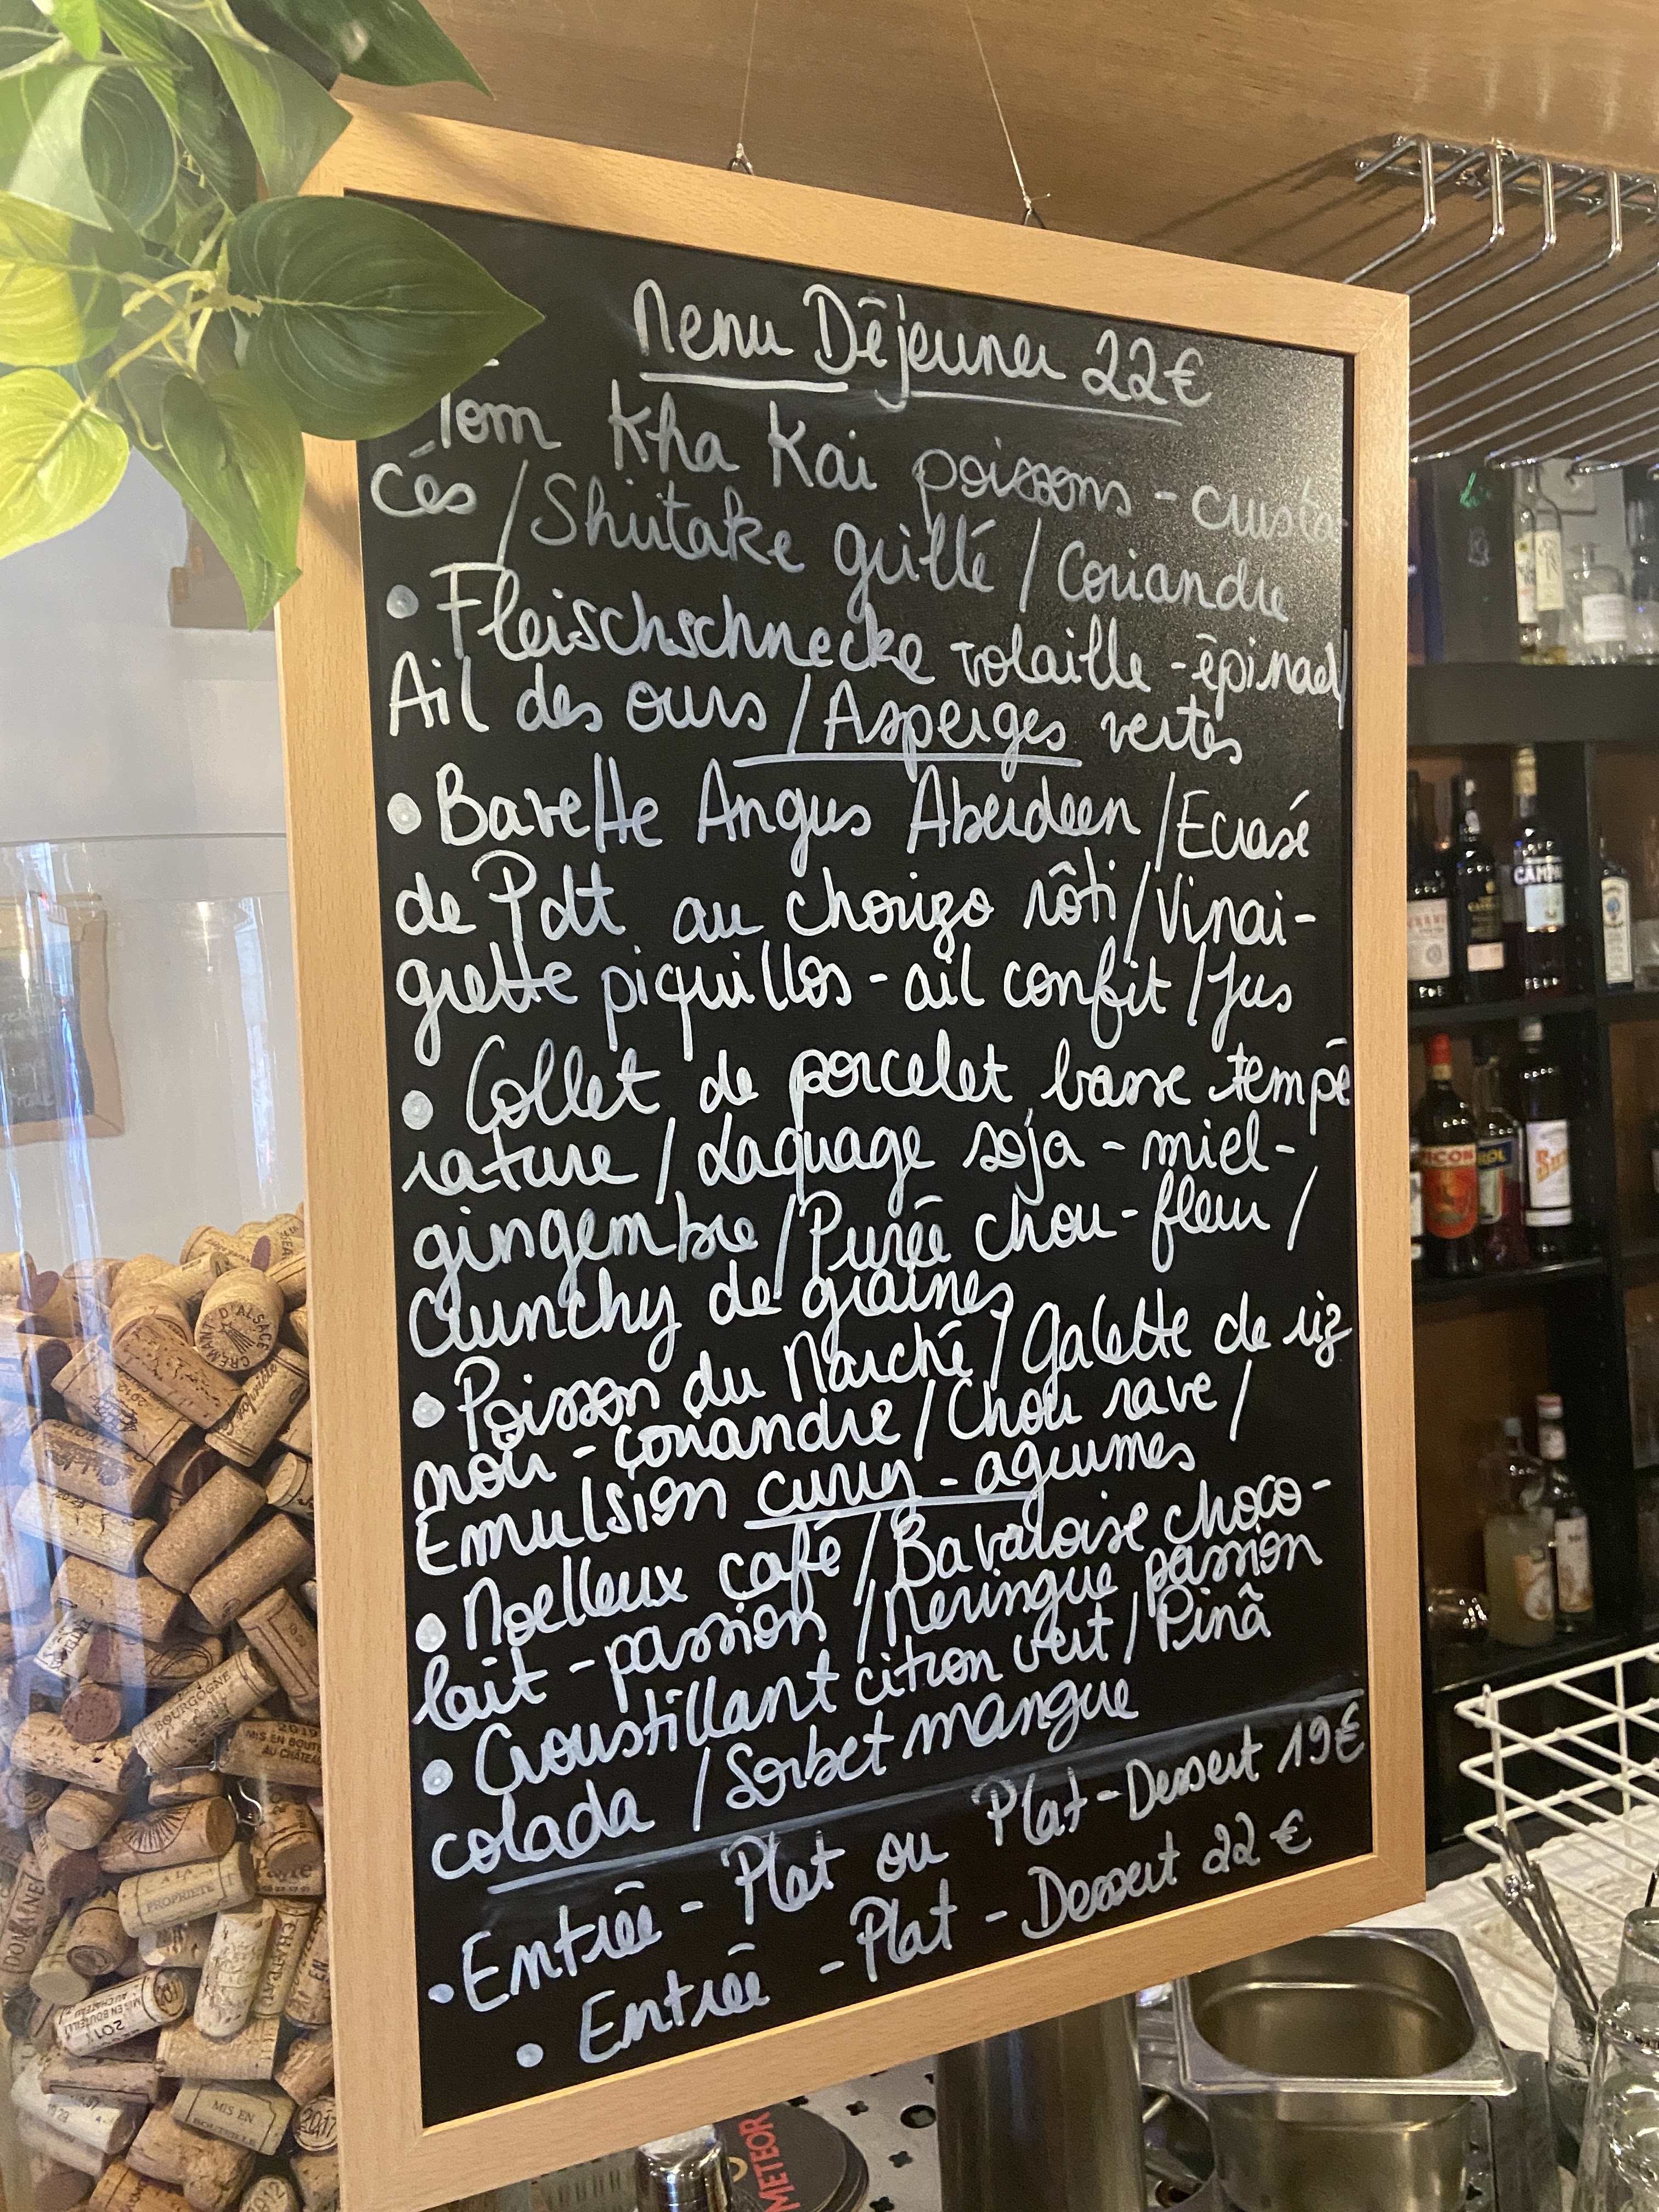 Menu Déjeuner 22€
Tom Kha Kai poissons - crusta-
cés / Shiitake grillé / Coriandre
• Fleischschnecke volaille - épinard /
Ail des ours / Asperges vertes
• Bavette Angus Aberdeen / Ecrasé
de Pdt au chorizo rôti / Vinai-
grette piquillos - ail confit / Jus
• Collet de porcelet basse tempé
rature / Laquage soja - miel -
gingembre / Purée chou-fleur /
Crunchy de graines
• Poisson du Marché / Galette de riz
noir - coriandre / Chou rave /
Emulsion curry - agrumes
• Moelleux café / Bavaroise choco-
lait - passion / Meringue passion
• Croustillant citron vert / Pinã
colada / Sorbet mangue
• Entrée - Plat ou Plat - Dessert 19€
• Entrée - Plat - Dessert 22€
CRÉMANT D'ALSACE
BOURGOGNE
2019
MIS EN BOUT
AU CHÂTEAU
A LA
PROPRIETE
DOMAINE
MIS EN BOUTEILL
AU CHATEAU
201
MIS EN
BOUTEILLE
2017
2012
METEOR
CAMPA
ICON